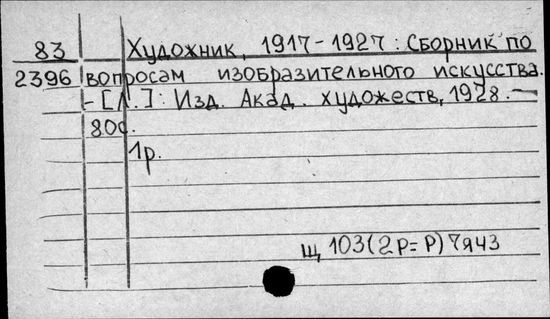 83 Художник, 1917-1927: Сборник по
2396 вопросам изобразительного искусства.
- [Л.]: Изд. Акад. художеств, 1928. —
80с.
1р.
Щ 103(2Р=Р)7я43